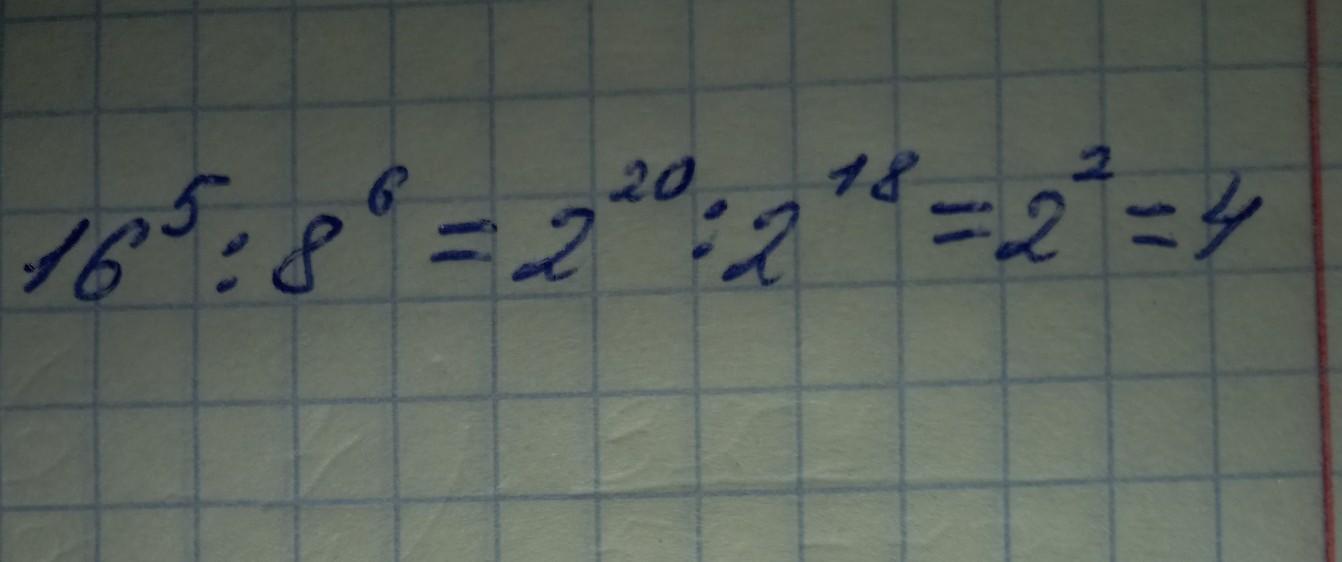 16⁵ : 8⁶ = 2²⁰ : 2¹⁸ = 2² = 4